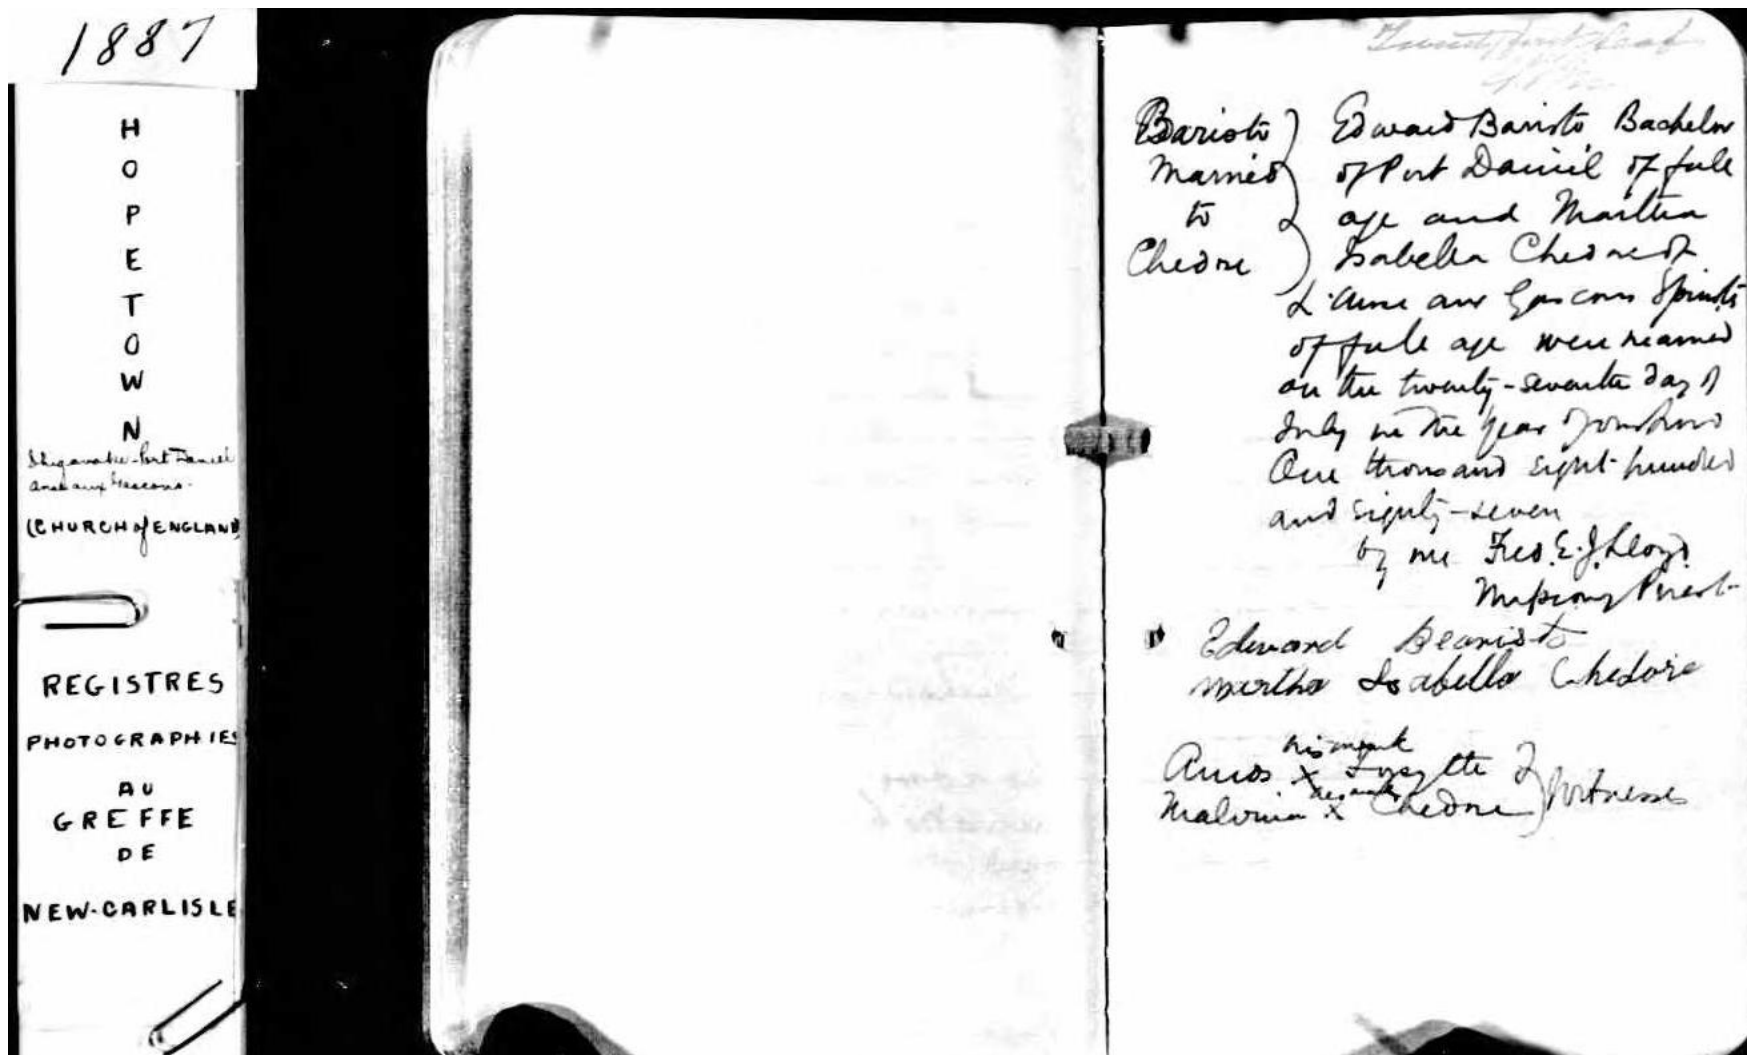 1887
H
O
P
E
T
O
W
N
Shigawake-Port Daniel
Anse aux Gascons.
(CHURCH of ENGLAND)
REGISTRES
PHOTOGRAPHIES
AU
GREFFE
DE
NEW-CARLISLE
Twenty first Leaf
Baristo
Married
to
Chedore
Edward Baristo Bachelor
of Port Daniel of full
age and Martha
Isabella Chedore of
L'Anse aux Gascons Spinster
of full age were married
on the twenty-seventh day of
July in the year of our Lord
One thousand eight hundred
and eighty-seven
by me Fred. E. J. Lloyd.
Missionary Priest
Edward Bearisto
Martha Isabella Chedore
his mark
Amos X Forsythe
her mark
Malvina X Chedore
Witnesses